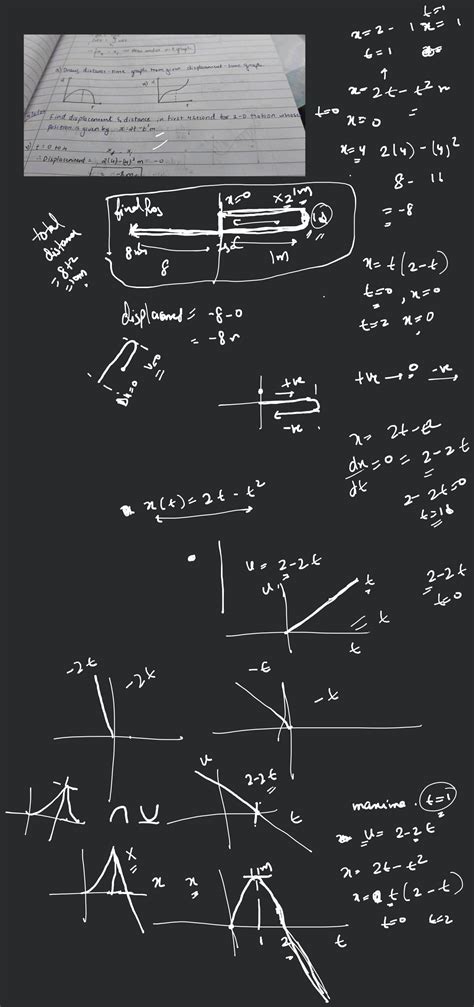 Draw distance-time graph from given displacement-time graph.
Find displacement & distance in first 4 second for 1-D motion whose
position is given by x=2t-t²m
t=0 to 4
∴ Displacement = 2(4)-(4)² m = -0
x=2-1
t=1
t=1
x=1
x=2t-t²m
t=0
x=0
x=4 2(4)-(4)²
8-16
=-8
x=0
1m
final Pos
8m
8
1m
total
distance
=8+2
=10m
x=t(2-t)
t=0, x=0
t=2 x=0
displacement = -8-0
=-8m
+ve → 0 → -ve
+ve
1
-ve
x=2t-t²
dx/dt=0=2-2t
2-2t=0
t=1s
x(t)=2t-t²
v=2-2t
v
t
t
t
2-2t
t=0
-2t
-2t
-t
-t
v
2-2t
t
maxima. t=1
v=2-2t
x=2t-t²
x=t(2-t)
t=0 t=2
x
x
x
1m
1
2
t